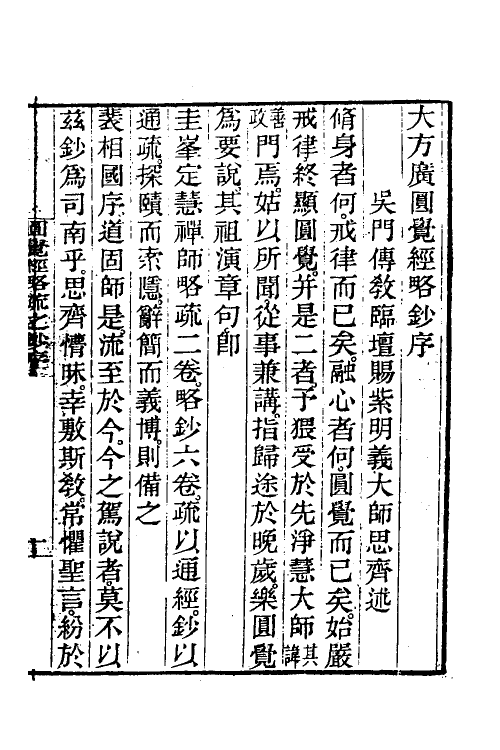 大方廣圓覺經略鈔序
吳門傳敎臨壇賜紫明義大師思齊述
脩身者何。戒律而已矣。融心者何。圓覺而已矣。始嚴
戒律終顯圓覺。幷是二者。予猥受於先淨慧大師諱其
善政門焉。姑以所聞。從事兼講。指歸途於晚歲。樂圓覺
爲要說。其祖演章句卽
圭峯定慧禪師略疏二卷。略鈔六卷。疏以通經。鈔以
通疏。探賾而索隱。辭簡而義博。則備之
裴相國序道固師是。流至於今。今之駕說者。莫不以
茲鈔爲司南乎。思齊懵昧。幸敷斯敎。常懼聖言。紛於
圓覺經略疏之鈔序
一